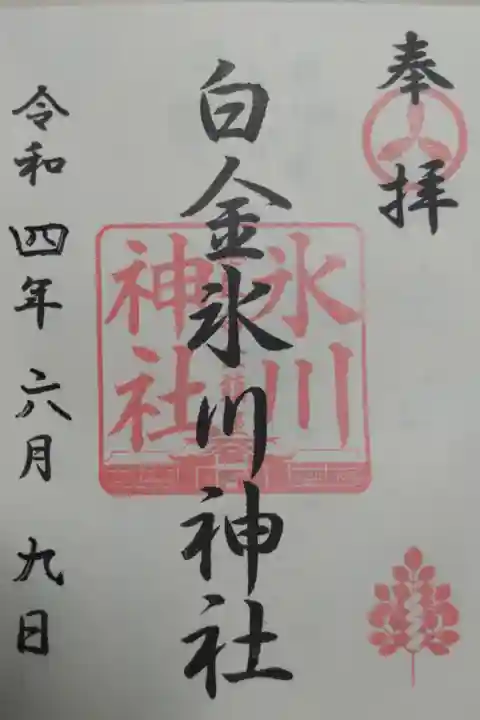 奉拝
白金氷川神社
氷川
神社
令和四年六月九日